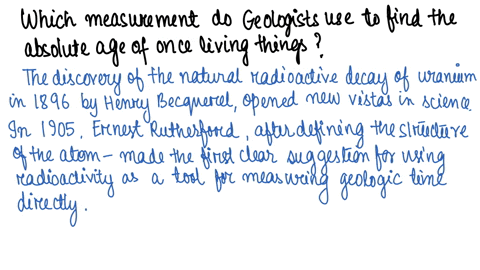 Which measurement do Geologists use to find the
absolute age of once living things?
The discovery of the natural radioactive decay of uranium
in 1896 by Henry Becquerel, opened new vistas in science.
In 1905, Ernest Rutherford, after defining the structure
of the atom - made the first clear suggestion for using
radioactivity as a tool for measuring geologic time
directly.